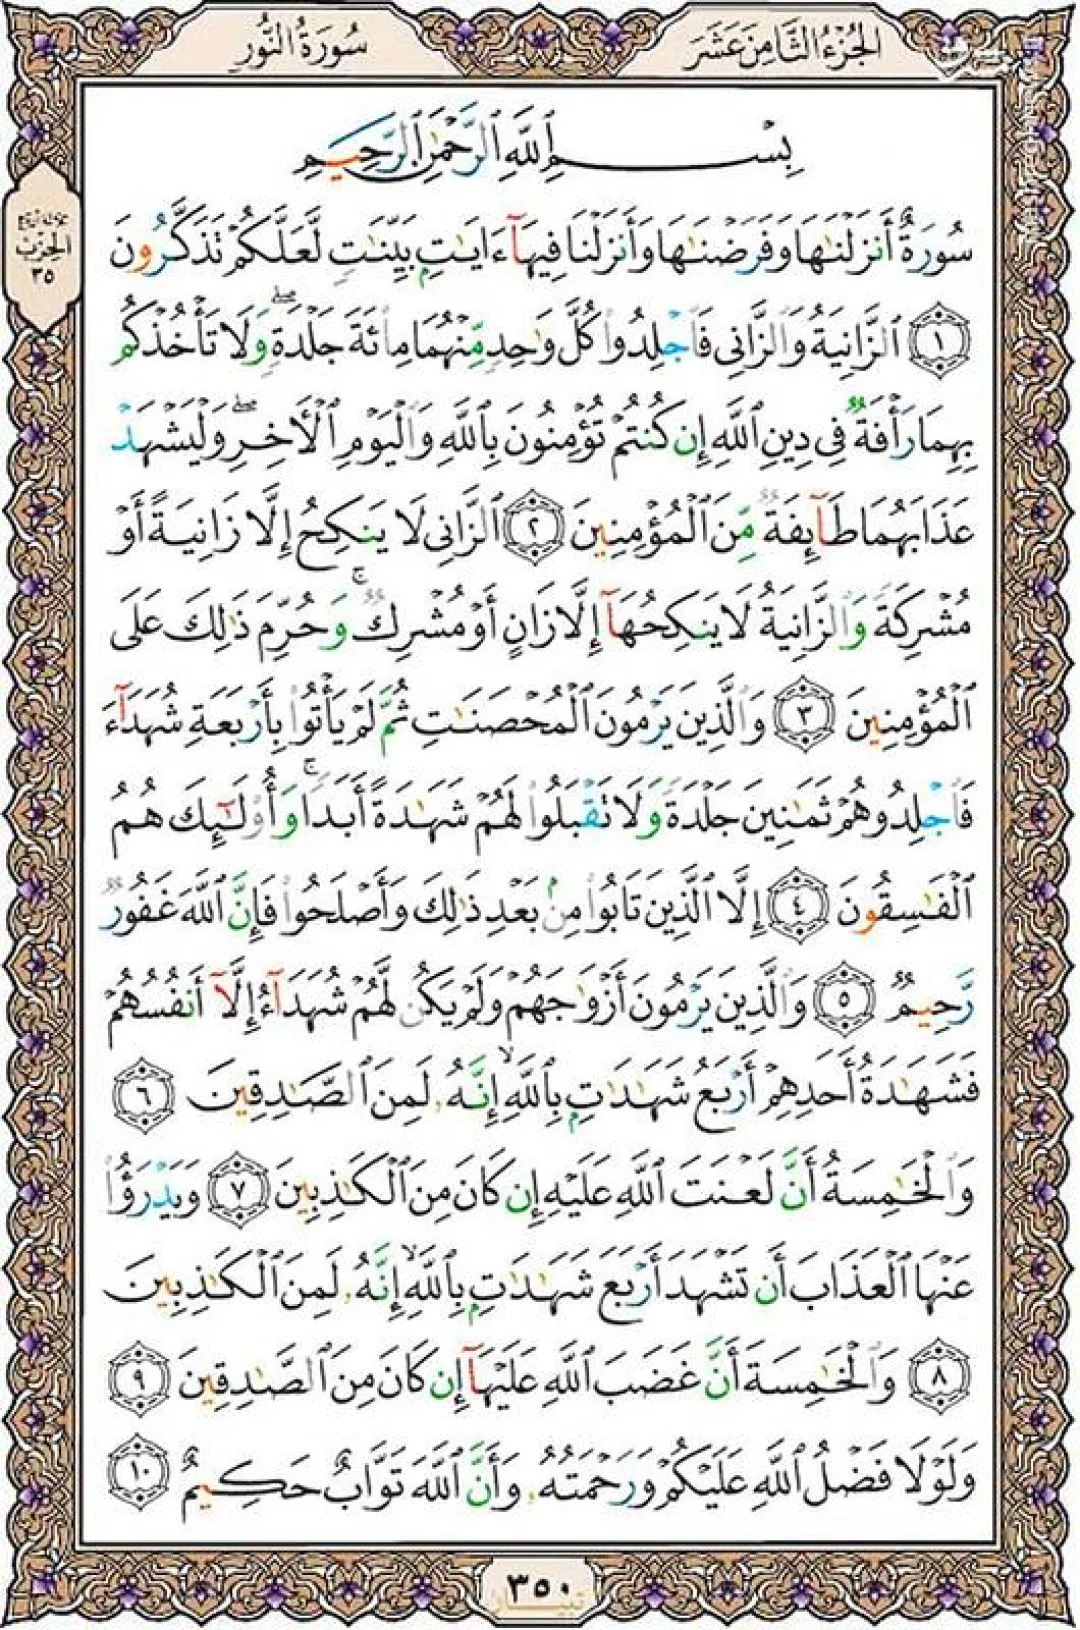 الجزء الثامن عشر
سورة النور
ثلاثة أرباع
الحزب
٣٥
بِسْمِ ٱللَّهِ ٱلرَّحْمَٰنِ ٱلرَّحِيمِ
سُورَةٌ أَنزَلْنَٰهَا وَفَرَضْنَٰهَا وَأَنزَلْنَا فِيهَآ ءَايَٰتٍۭ بَيِّنَٰتٍ لَّعَلَّكُمْ تَذَكَّرُونَ
١ ٱلزَّانِيَةُ وَٱلزَّانِى فَٱجْلِدُوا۟ كُلَّ وَٰحِدٍ مِّنْهُمَا مِا۟ئَةَ جَلْدَةٍۖ وَلَا تَأْخُذْكُم
بِهِمَا رَأْفَةٌ فِى دِينِ ٱللَّهِ إِن كُنتُمْ تُؤْمِنُونَ بِٱللَّهِ وَٱلْيَوْمِ ٱلْأَخِرِۖ وَلْيَشْهَدْ
عَذَابَهُمَا طَآئِفَةٌ مِّنَ ٱلْمُؤْمِنِينَ ٢ ٱلزَّانِى لَا يَنكِحُ إِلَّا زَانِيَةً أَوْ
مُشْرِكَةً وَٱلزَّانِيَةُ لَا يَنكِحُهَآ إِلَّا زَانٍ أَوْ مُشْرِكٌۚ وَحُرِّمَ ذَٰلِكَ عَلَى
ٱلْمُؤْمِنِينَ ٣ وَٱلَّذِينَ يَرْمُونَ ٱلْمُحْصَنَٰتِ ثُمَّ لَمْ يَأْتُوا۟ بِأَرْبَعَةِ شُهَدَآءَ
فَٱجْلِدُوهُمْ ثَمَٰنِينَ جَلْدَةً وَلَا تَقْبَلُوا۟ لَهُمْ شَهَٰدَةً أَبَدًاۚ وَأُو۟لَٰٓئِكَ هُمُ
ٱلْفَٰسِقُونَ ٤ إِلَّا ٱلَّذِينَ تَابُوا۟ مِنۢ بَعْدِ ذَٰلِكَ وَأَصْلَحُوا۟ فَإِنَّ ٱللَّهَ غَفُورٌ
رَّحِيمٌ ٥ وَٱلَّذِينَ يَرْمُونَ أَزْوَٰجَهُمْ وَلَمْ يَكُن لَّهُمْ شُهَدَآءُ إِلَّآ أَنفُسُهُمْ
فَشَهَٰدَةُ أَحَدِهِمْ أَرْبَعُ شَهَٰدَٰتٍۭ بِٱللَّهِۙ إِنَّهُۥ لَمِنَ ٱلصَّٰدِقِينَ ٦
وَٱلْخَٰمِسَةُ أَنَّ لَعْنَتَ ٱللَّهِ عَلَيْهِ إِن كَانَ مِنَ ٱلْكَٰذِبِينَ ٧ وَيَدْرَؤُا۟
عَنْهَا ٱلْعَذَابَ أَن تَشْهَدَ أَرْبَعَ شَهَٰدَٰتٍۭ بِٱللَّهِۙ إِنَّهُۥ لَمِنَ ٱلْكَٰذِبِينَ
٨ وَٱلْخَٰمِسَةَ أَنَّ غَضَبَ ٱللَّهِ عَلَيْهَآ إِن كَانَ مِنَ ٱلصَّٰدِقِينَ ٩
وَلَوْلَا فَضْلُ ٱللَّهِ عَلَيْكُمْ وَرَحْمَتُهُۥ وَأَنَّ ٱللَّهَ تَوَّابٌ حَكِيمٌ ١٠
٣٥٠
تبيان